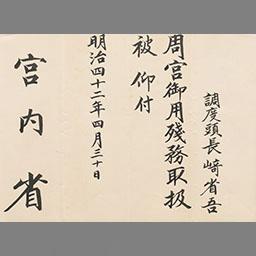 調度頭長﨑省吾
周宮御用殘務取扱
被仰付
明治四十二年四月三十日
宮内省